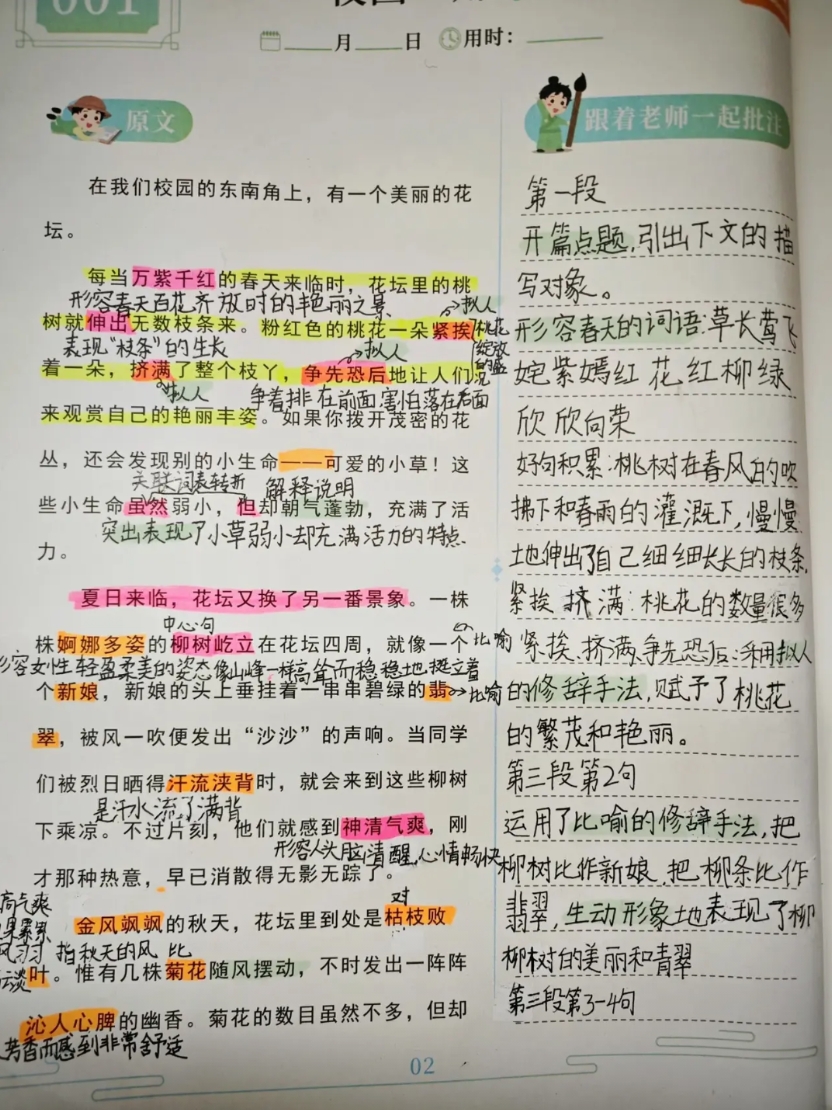 001
月 日 用时：
原文
在我们校园的东南角上，有一个美丽的花
坛。
每当万紫千红的春天来临时，花坛里的桃
形容春天百花齐放时的艳丽之景
拟人
树就伸出无数枝条来。粉红色的桃花一朵紧挨
桃花
绽放
表现"枝条"的生长
拟人
着一朵，挤满了整个枝丫，争先恐后地让人们
拟人
争着排在前面害怕落在后面
来观赏自己的艳丽丰姿。如果你拨开茂密的花
丛，还会发现别的小生命——可爱的小草！这
关联词表转折
解释说明
些小生命虽然弱小，但却朝气蓬勃，充满了活
突出表现了小草弱小却充满活力的特点
力。
夏日来临，花坛又换了另一番景象。一株
中心句
株婀娜多姿的柳树屹立在花坛四周，就像一个
比喻
形容女性轻盈柔美的姿态像山峰一样高耸而稳稳地挺立着
个新娘，新娘的头上垂挂着一串串碧绿的翡
比喻
翠，被风一吹便发出“沙沙”的声响。当同学
们被烈日晒得汗流浃背时，就会来到这些柳树
是汗水流了满背
下乘凉。不过片刻，他们就感到神清气爽，刚
形容人头脑清醒，心情畅快
才那种热意，早已消散得无影无踪了。
高气爽
对
金风飒飒的秋天，花坛里到处是枯枝败
指秋天的风
比
叶。惟有几株菊花随风摆动，不时发出一阵阵
沁人心脾的幽香。菊花的数目虽然不多，但却
芳香而感到非常舒适
跟着老师一起批注
第一段
开篇点题，引出下文的描
写对象。
形容春天的词语：草长莺飞
姹紫嫣红 花红柳绿
欣欣向荣
好句积累：桃树在春风的吹
拂下和春雨的灌溉下，慢慢
地伸出了自己细细长长的枝条.
紧挨 挤满：桃花的数量很多
紧挨、挤满、争先恐后：采用拟人
的修辞手法，赋予了桃花
的繁茂和艳丽。
第三段第2句
运用了比喻的修辞手法，把
柳树比作新娘，把柳条比作
翡翠，生动形象地表现了柳
柳树的美丽和青翠
第三段第3-4句
02